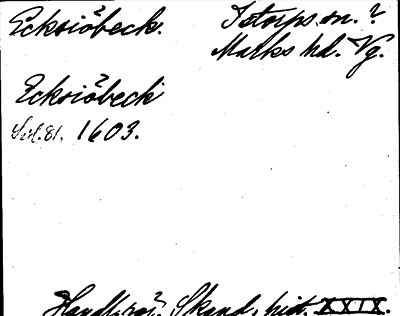 Ecksiöbeck. Istorps sn. ?
Marks hd. Vg.
Ecksiöbeck
1603.
Handl. rör. Skand. hist. XXIX.